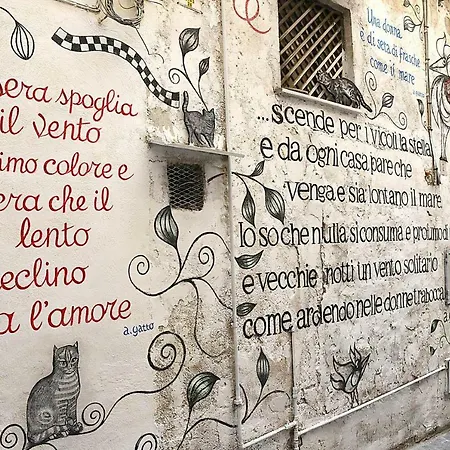 sera spoglia
il vento
imo colore e
era che il
lento
eclino
a l'amore
a. gatto
Una donna
è di seta di frasche
come il mare
...scende per i vicoli la stella
e da ogni casa pare che
venga e sia lontano il mare
Io so che nulla si consuma e profumo di
e vecchie notti un vento solitario
come ardendo nelle donne trabocca
a.